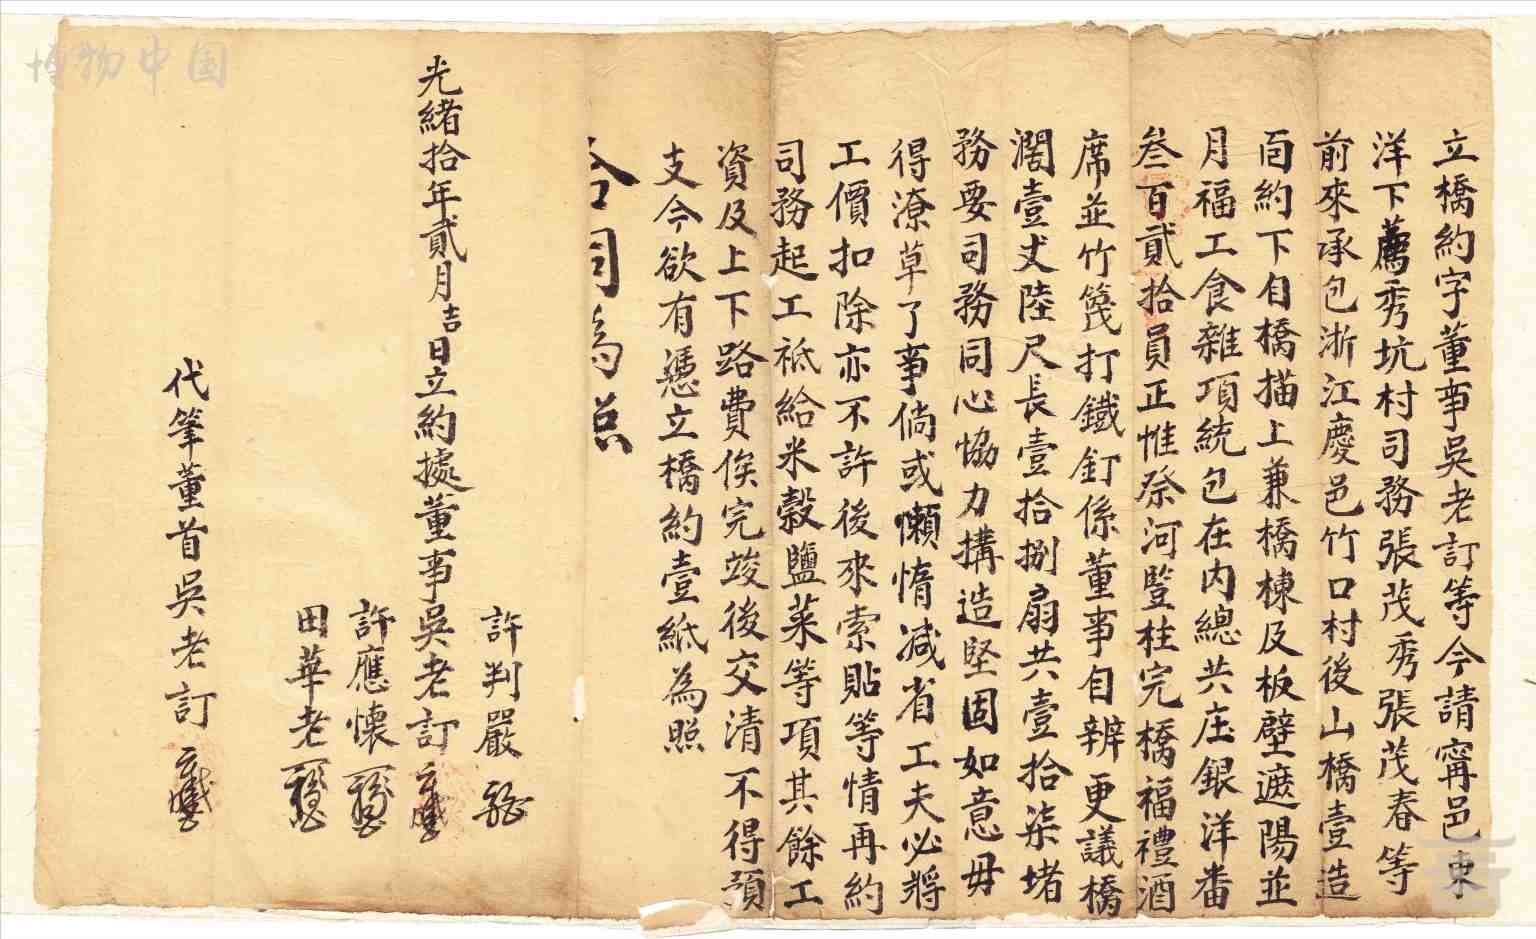 立橋約字董事吳老訂等今請寧邑東
洋下薦秀坑村司務張茂秀張茂春等
前來承包浙江慶邑竹口村後山橋壹造
面約下自橋描上兼橋棟及板壁遮陽並
月福工食雜項統包在內總共庄銀洋番
叁百貳拾員正惟祭河豎柱完橋福禮酒
席並竹篾打鐵釘係董事自辨更議橋
濶壹丈陸尺長壹拾捌扇共壹拾柒堵
務要司務同心恊力搆造堅固如意毋
得潦草了事倘或懶惰減省工夫必將
工價扣除亦不許後來索貼等情再約
司務起工祗給米穀鹽菜等項其餘工
資及上下路費俟完竣後交清不得預
支今欲有憑立橋約壹紙為照
合同為照
許判嚴
光緒拾年貳月吉日立約據董事吳老訂
許應懷
田華老
代筆董首吳老訂
博物中国